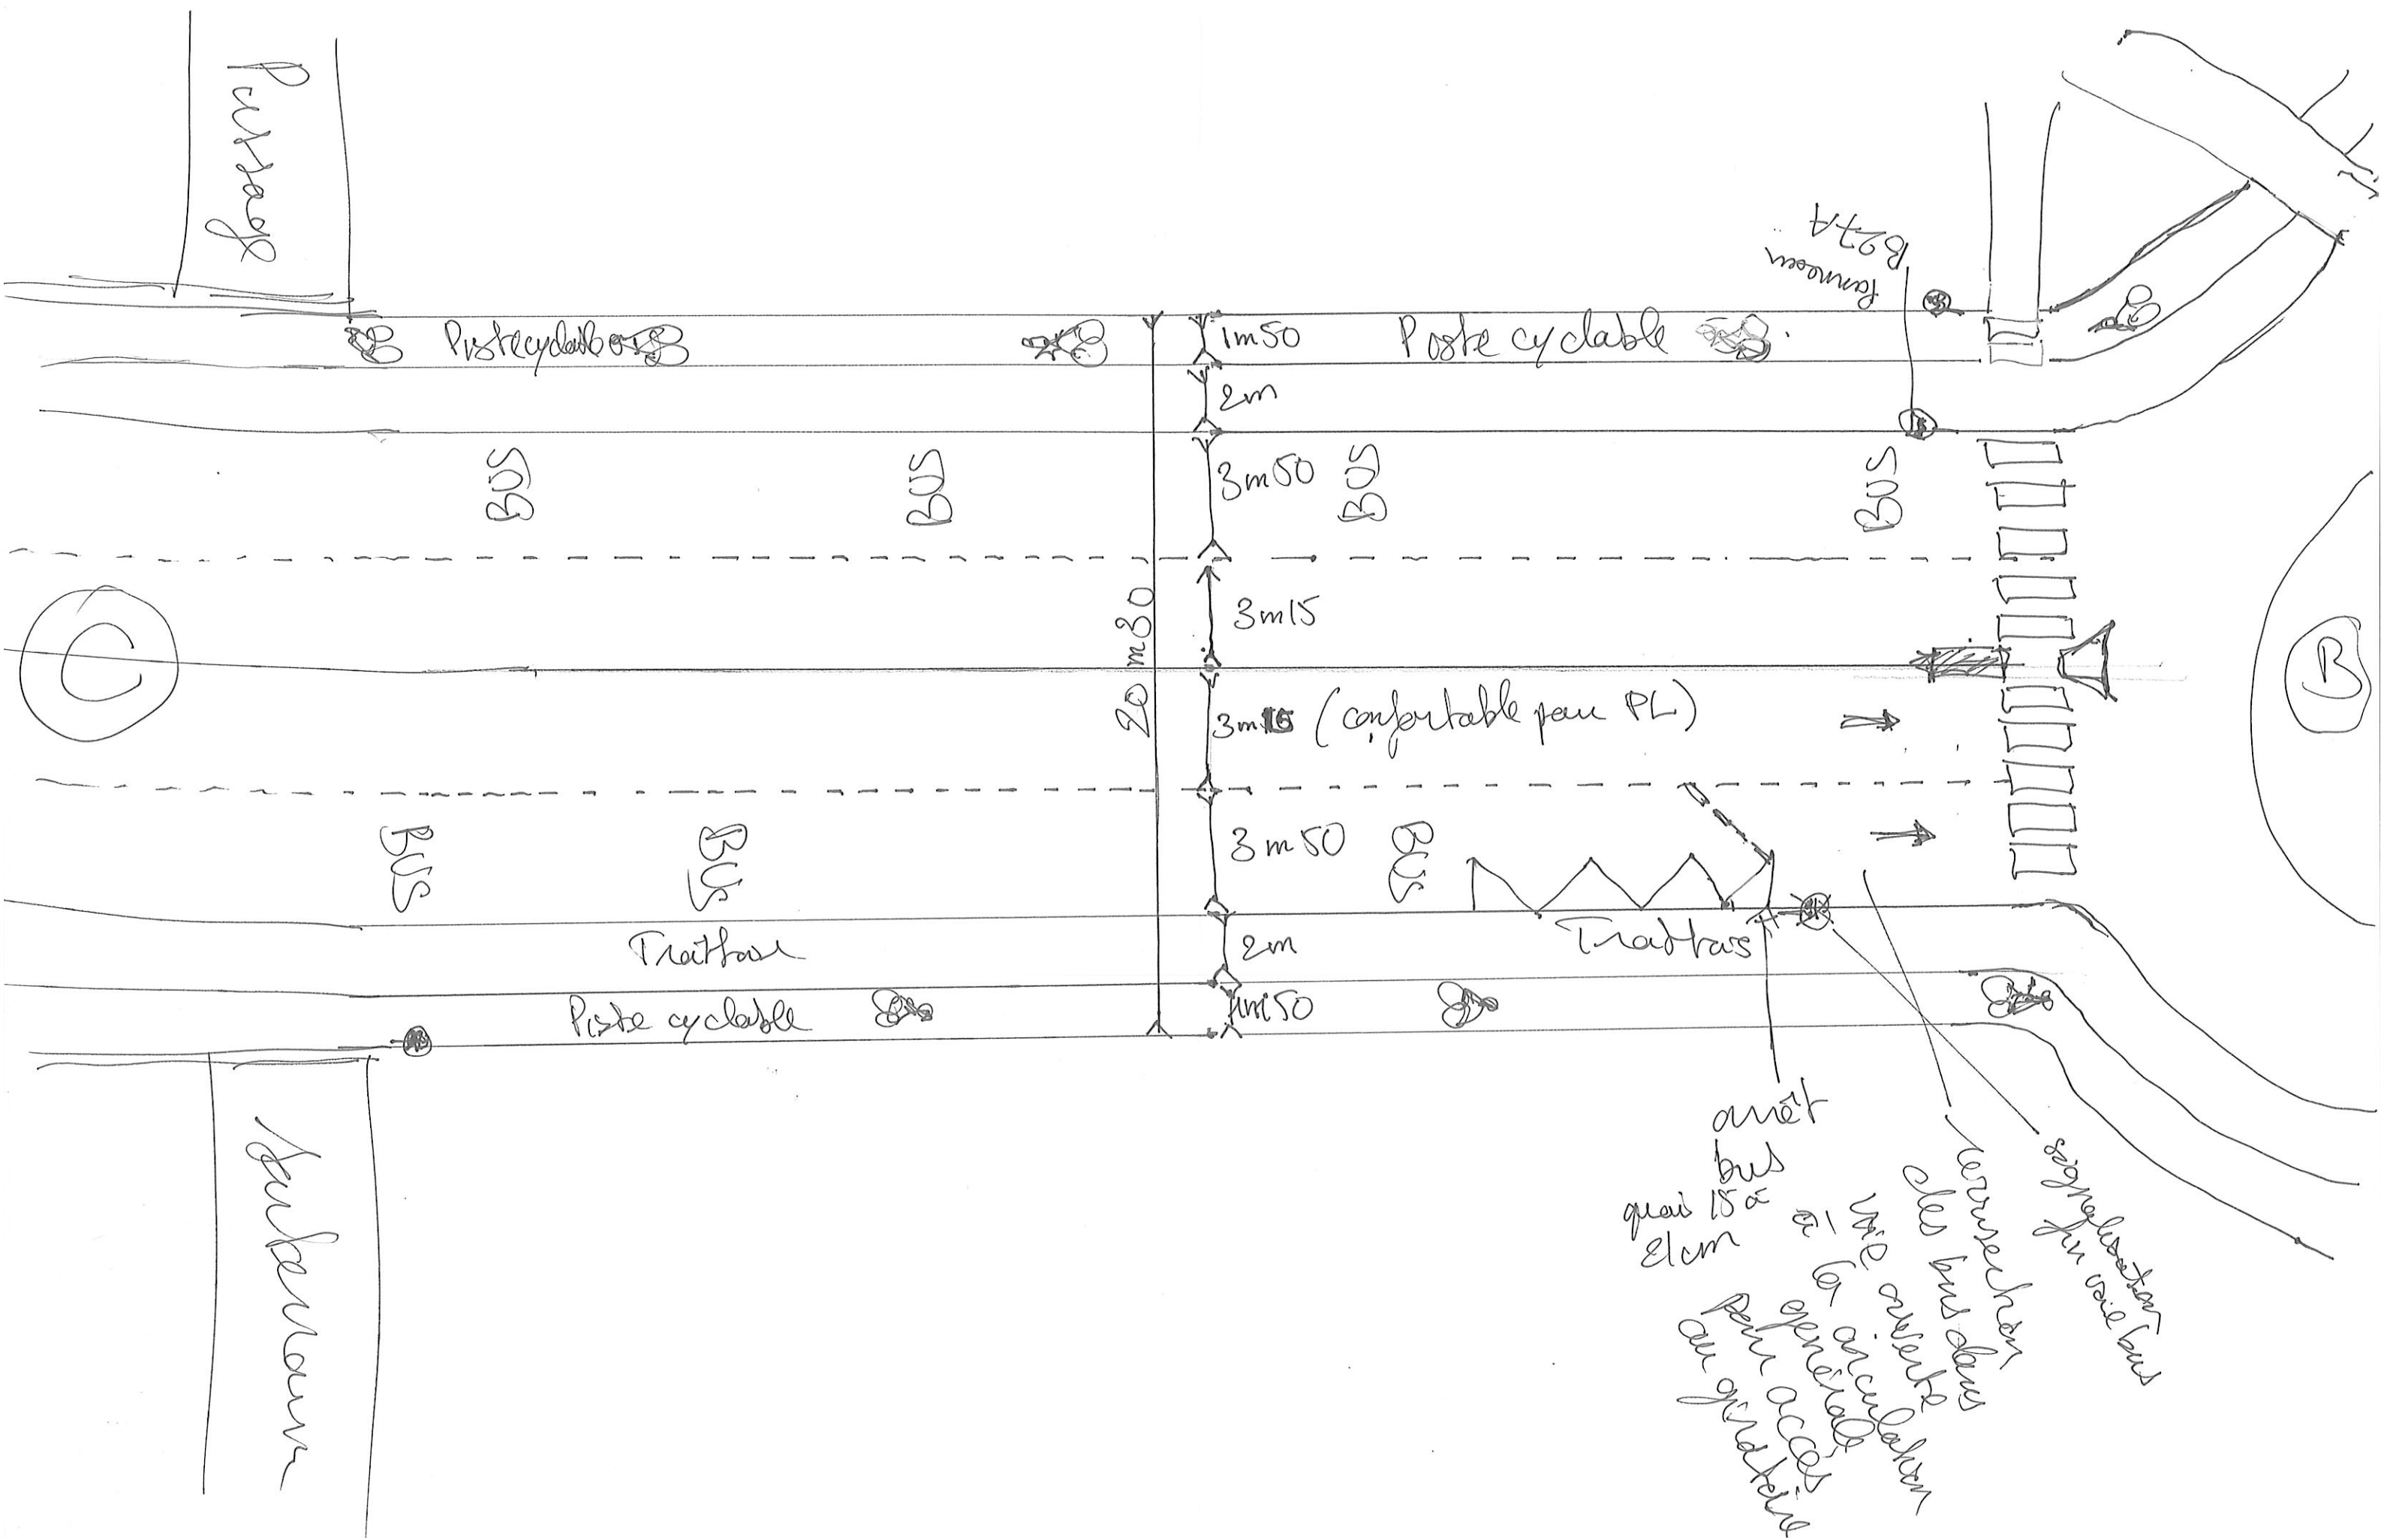 Passage
Panneau
B27A
Piste cyclable
1m50
Piste cyclable
2m
BUS
BUS
3m50
BUS
BUS
C
20m30
3m15
B
(confortable pour PL)
BUS
BUS
3m50
BUS
Trottoir
2m
Trottoir
Piste cyclable
1m50
arrêt
bus
quai 18 à
21cm
réinsertion
des bus dans
voie ouverte
à la circulation
générale
pour accès
au giratoire
signalisation
fin voie bus